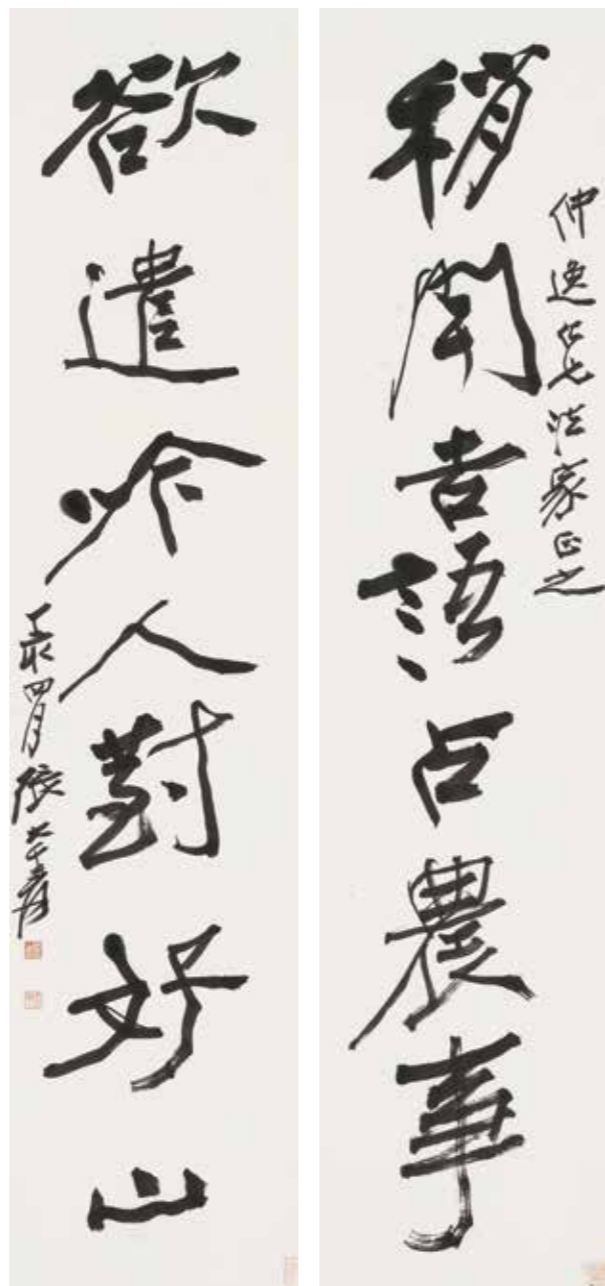 稍聞吉語占農事
仲逸仁兄法家正之
欲遣吟人對好山
四月張大千爰